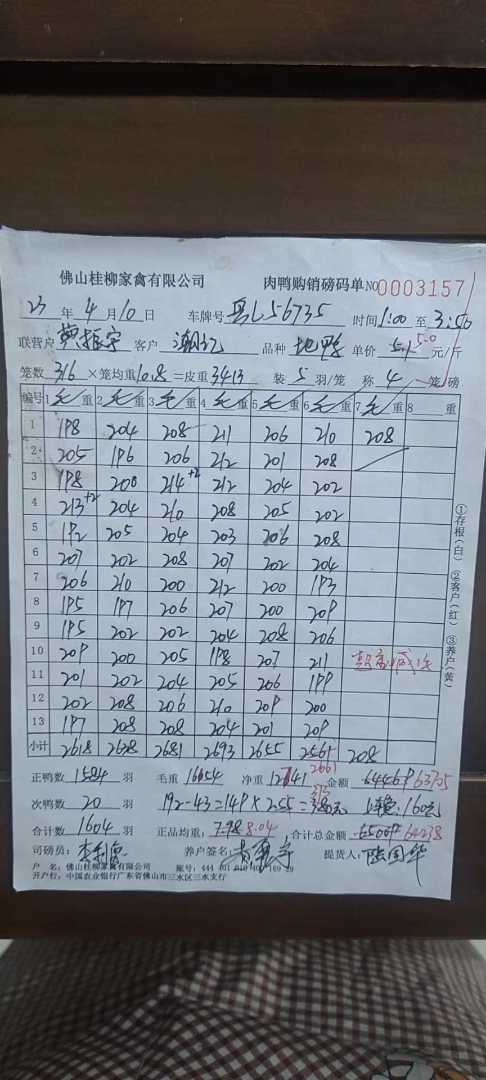 佛山桂柳家禽有限公司 肉鸭购销磅码单 NO 0003157
23 年 4 月 10 日 车牌号 粤L56735 时间 1:00 至 3:50
联营户 客户 品种 地鸭 单价 5.1 5.0 元/斤
笼数 316 ×笼均重 10.8 =皮重 3413 装 5 羽/笼 称 4 笼/磅
编号 1 毛重 2 毛重 3 毛重 4 毛重 5 毛重 6 毛重 7 毛重 8 重
1 198 204 208 211 206 210 208
2 205 196 206 212 201 208
3 198 200 214+2 212 204 202
4 213+2 204 210 208 205 202
5 192 205 204 203 206 208
6 207 202 208 207 202 204
7 206 210 200 212 200 193
8 195 197 206 207 200 209
9 195 202 202 204 208 206
10 209 200 205 198 207 211
11 201 202 204 205 206 199
12 202 208 206 210 209 200
13 197 208 208 204 201 209
小计 2618 2638 2681 2693 2655 2661 208
①存根(白) ②客户(红) ③养户(黄)
正鸭数 1584 羽 毛重 16054 净重 12741 金额 63705
次鸭数 20 羽 192-43=149×2.55= 160元
合计数 1604 羽 正品均重: 7.98 8.04 合计总金额 65009 64238
司磅员: 养户签名: 提货人:
户 名: 佛山桂柳家禽有限公司 账号:
开户行: 中国农业银行广东省佛山市三水区三水支行